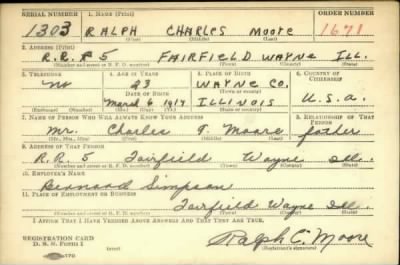 SERIAL NUMBER 1. NAME (Print) ORDER NUMBER
1303 RALPH CHARLES Moore 1671
(First) (Middle) (Last)
2. ADDRESS (Print)
R.R. #5 FAIRFIELD WAYNE ILL.
(Number and street or R. F. D. number) (Town) (County) (State)
3. TELEPHONE 4. AGE IN YEARS 5. PLACE OF BIRTH 6. COUNTRY OF CITIZENSHIP
no 23 WAYNE CO.
DATE OF BIRTH (Town or county)
March 6 1917 ILLINOIS U.S.A.
(Exchange) (Number) (Mo.) (Day) (Yr.) (State or country)
7. NAME OF PERSON WHO WILL ALWAYS KNOW YOUR ADDRESS 8. RELATIONSHIP OF THAT PERSON
Mr. Charles Moore father
(Mr., Mrs., Miss) (First) (Middle) (Last)
9. ADDRESS OF THAT PERSON
R.R. 5 Fairfield Wayne Ill.
(Number and street or R. F. D. number) (Town) (County) (State)
10. EMPLOYER'S NAME
Bernard Simpson
11. PLACE OF EMPLOYMENT OR BUSINESS
Fairfield Wayne Ill.
(Number and street or R. F. D. number) (Town) (County) (State)
I AFFIRM THAT I HAVE VERIFIED ABOVE ANSWERS AND THAT THEY ARE TRUE.
REGISTRATION CARD
D. S. S. Form 1 (over) Ralph C. Moore
(Registrant's signature)